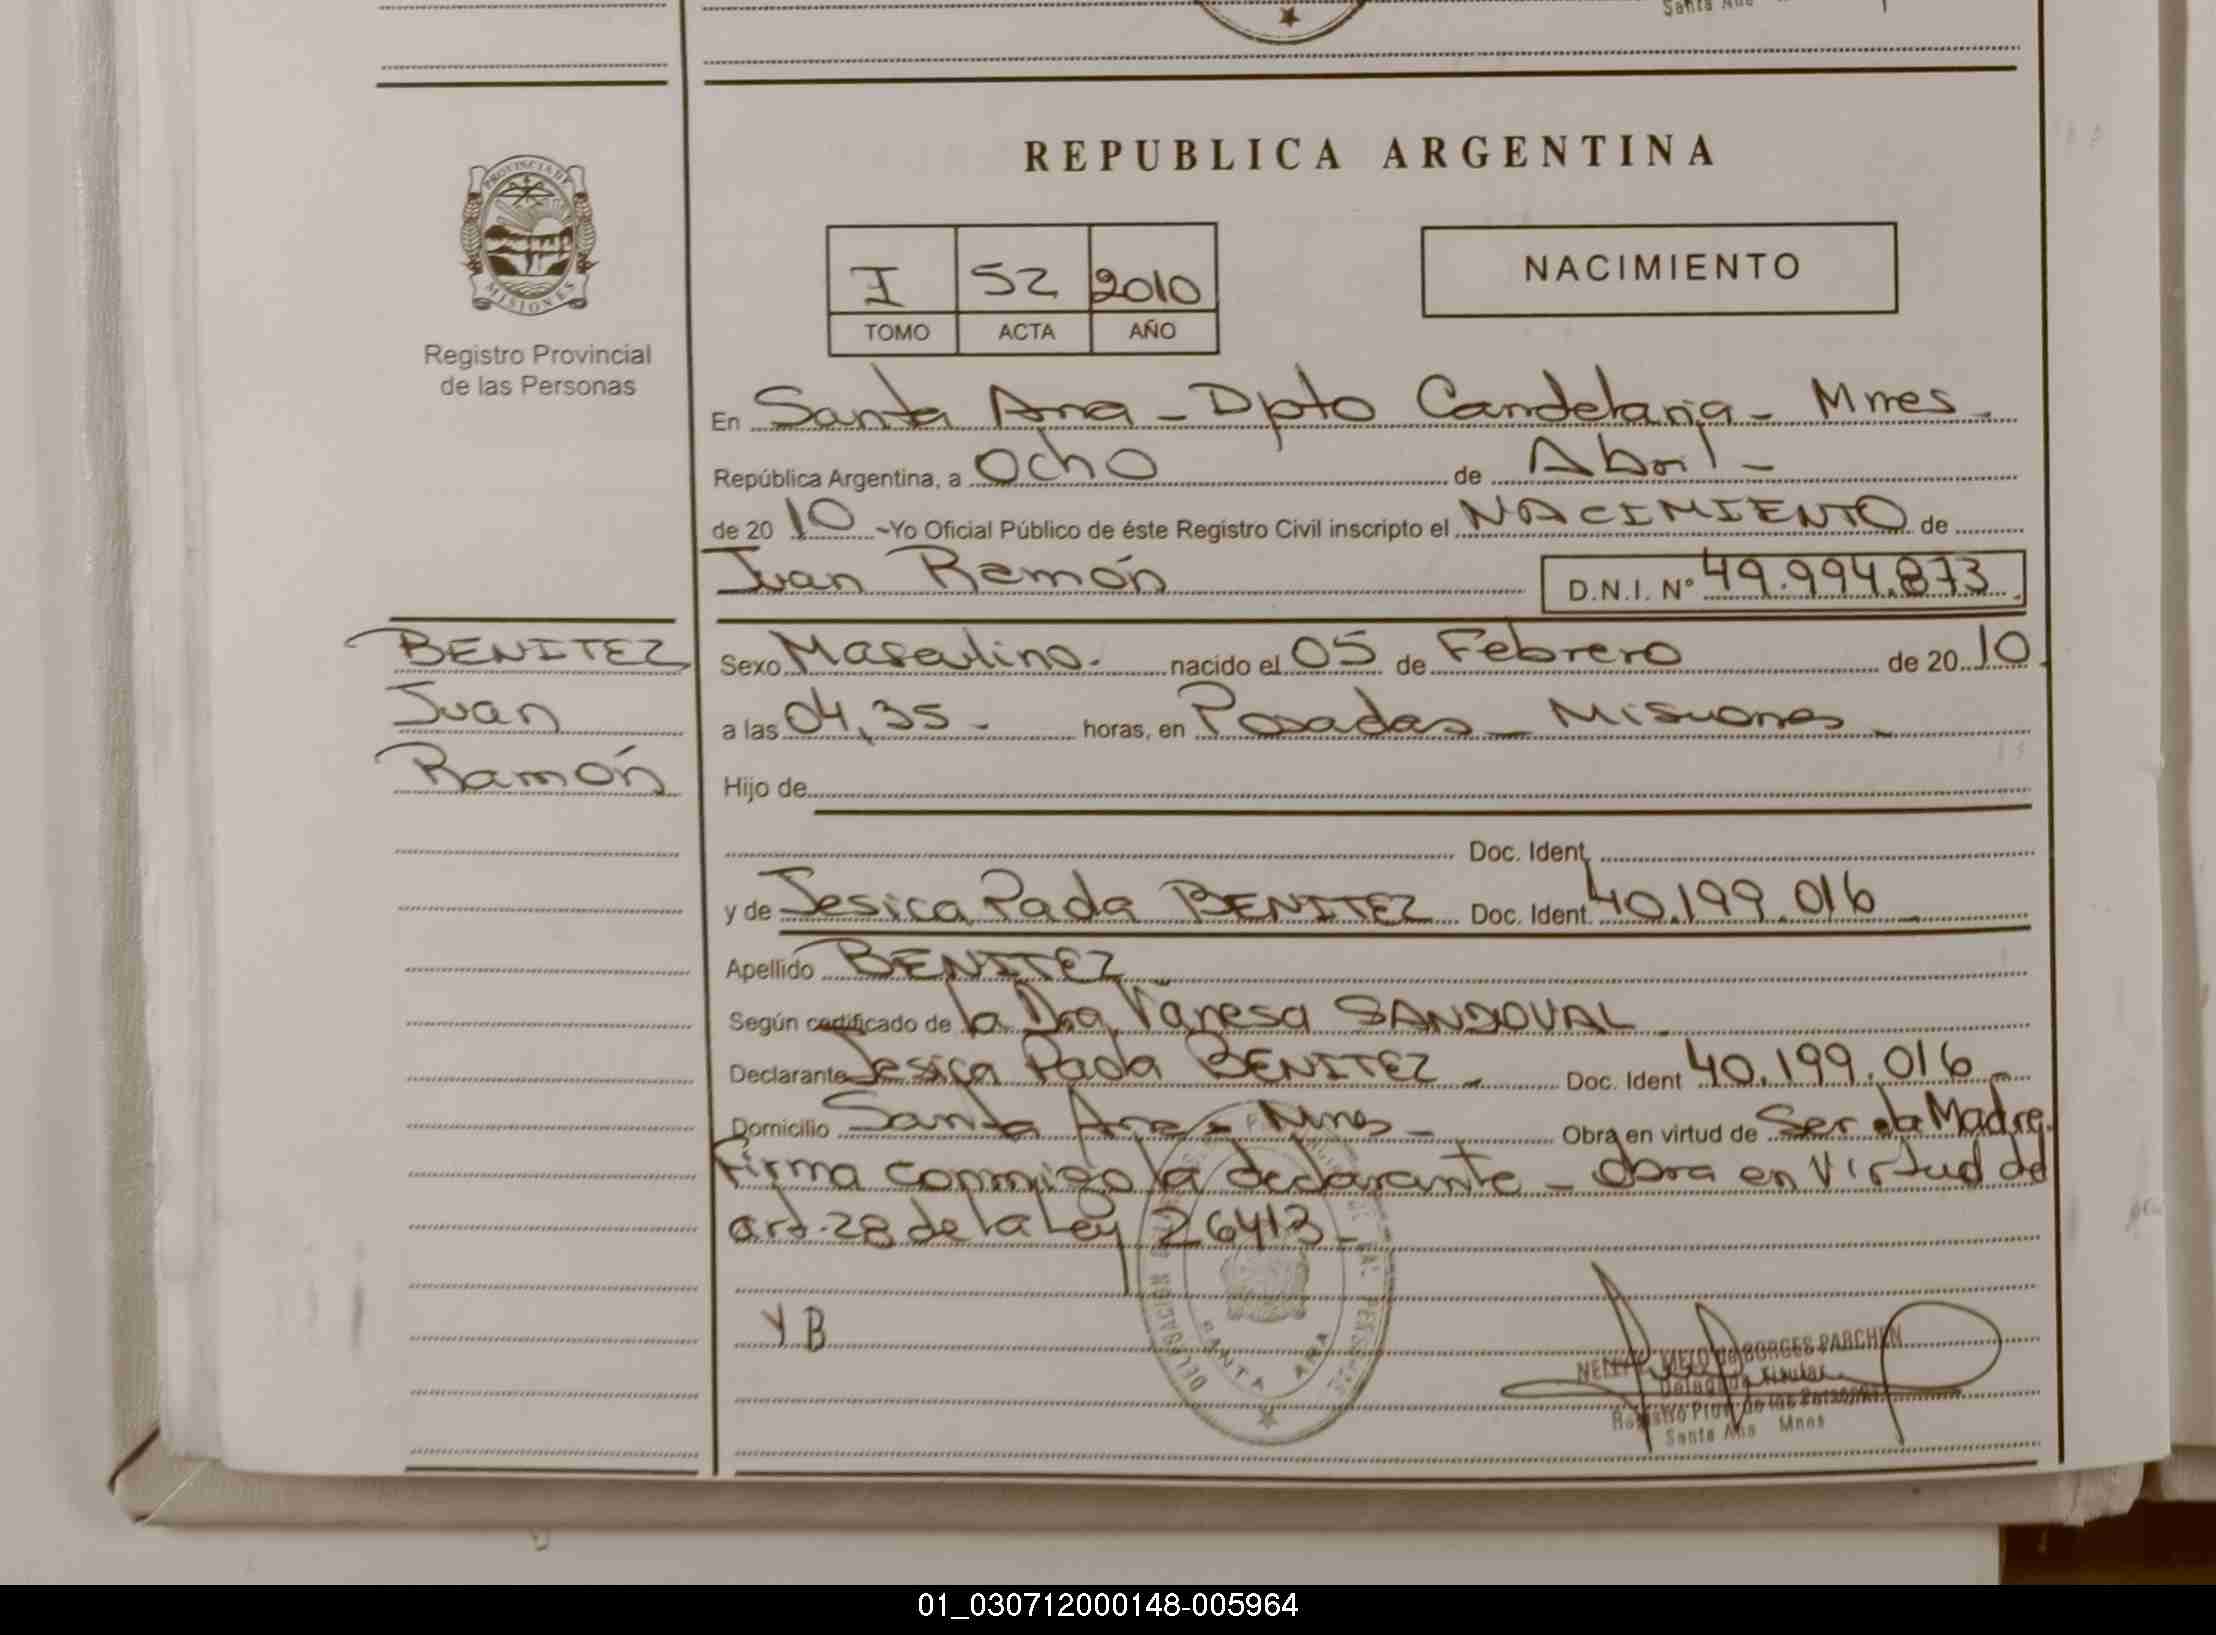 Santa Ana
REPUBLICA ARGENTINA
PROVINCIA DE
MISIONES
Registro Provincial
de las Personas
I 52 2010
TOMO ACTA AÑO
NACIMIENTO
En Santa Ana - Dpto Candelaria - Mnes -
República Argentina, a Ocho de Abril -
de 20 10 -Yo Oficial Público de éste Registro Civil inscripto el NACIMIENTO de
Juan Ramón D.N.I. N° 49.994.873
BENITEZ
Juan
Ramón
Sexo Masculino. nacido el 05 de Febrero de 20 10.
a las 04,35 - horas, en Posadas - Misiones -
Hijo de
Doc. Ident
y de Jesica BENITEZ Doc. Ident. 40.199.016 -
Apellido BENITEZ
Según certificado de la Dra Vanesa SANDOVAL -
Declarante Jesica BENITEZ - Doc. Ident 40.199.016 -
Domicilio Santa Ana - Mnes - Obra en virtud de Ser la Madre.
Firma conmigo la declarante - obra en virtud del
art. 28 de la Ley 26413 -
Y B
SANTA ANA
NELLY MELO de BORGES PARCHEN
Delegada Titular
Registro Prov. de las Personas
Santa Ana Mnes
01_030712000148-005964